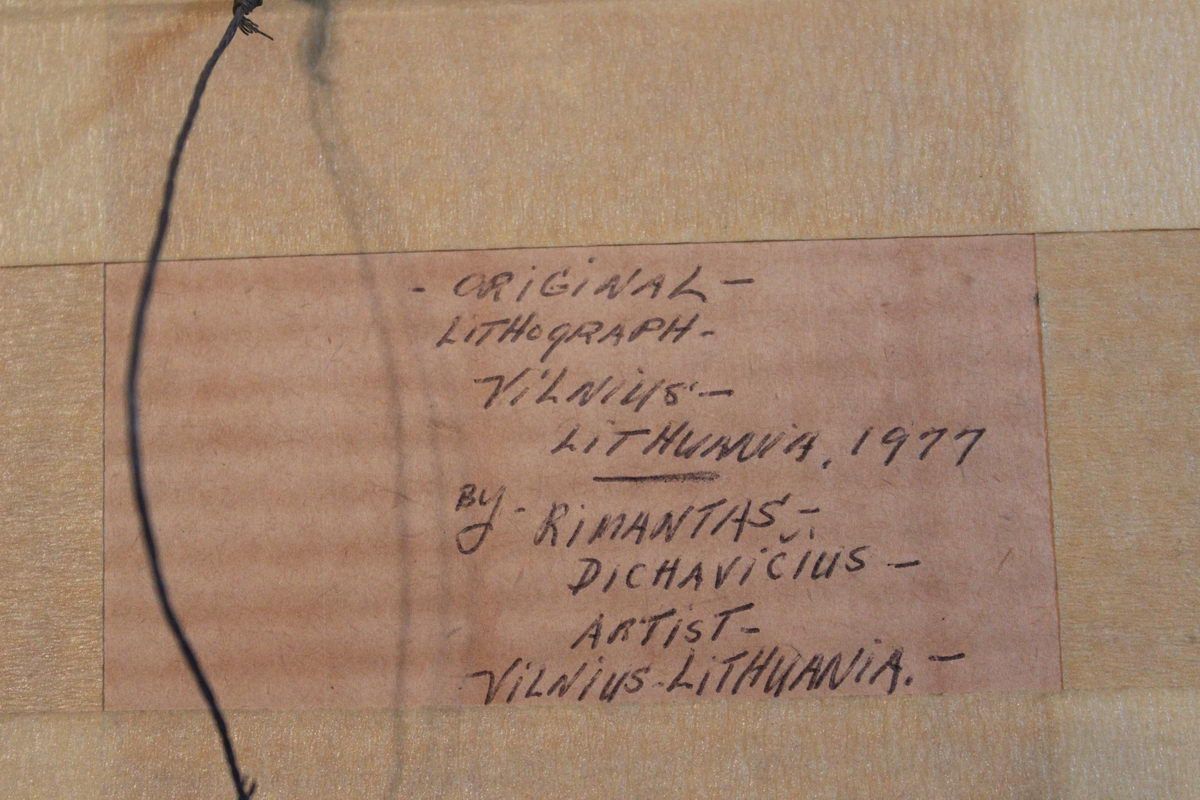 - ORIGINAL -
LITHOGRAPH -
VILNIUS -
LITHUANIA, 1977
BY - RIMANTAS -
DICHAVIČIUS -
ARTIST -
VILNIUS - LITHUANIA. -